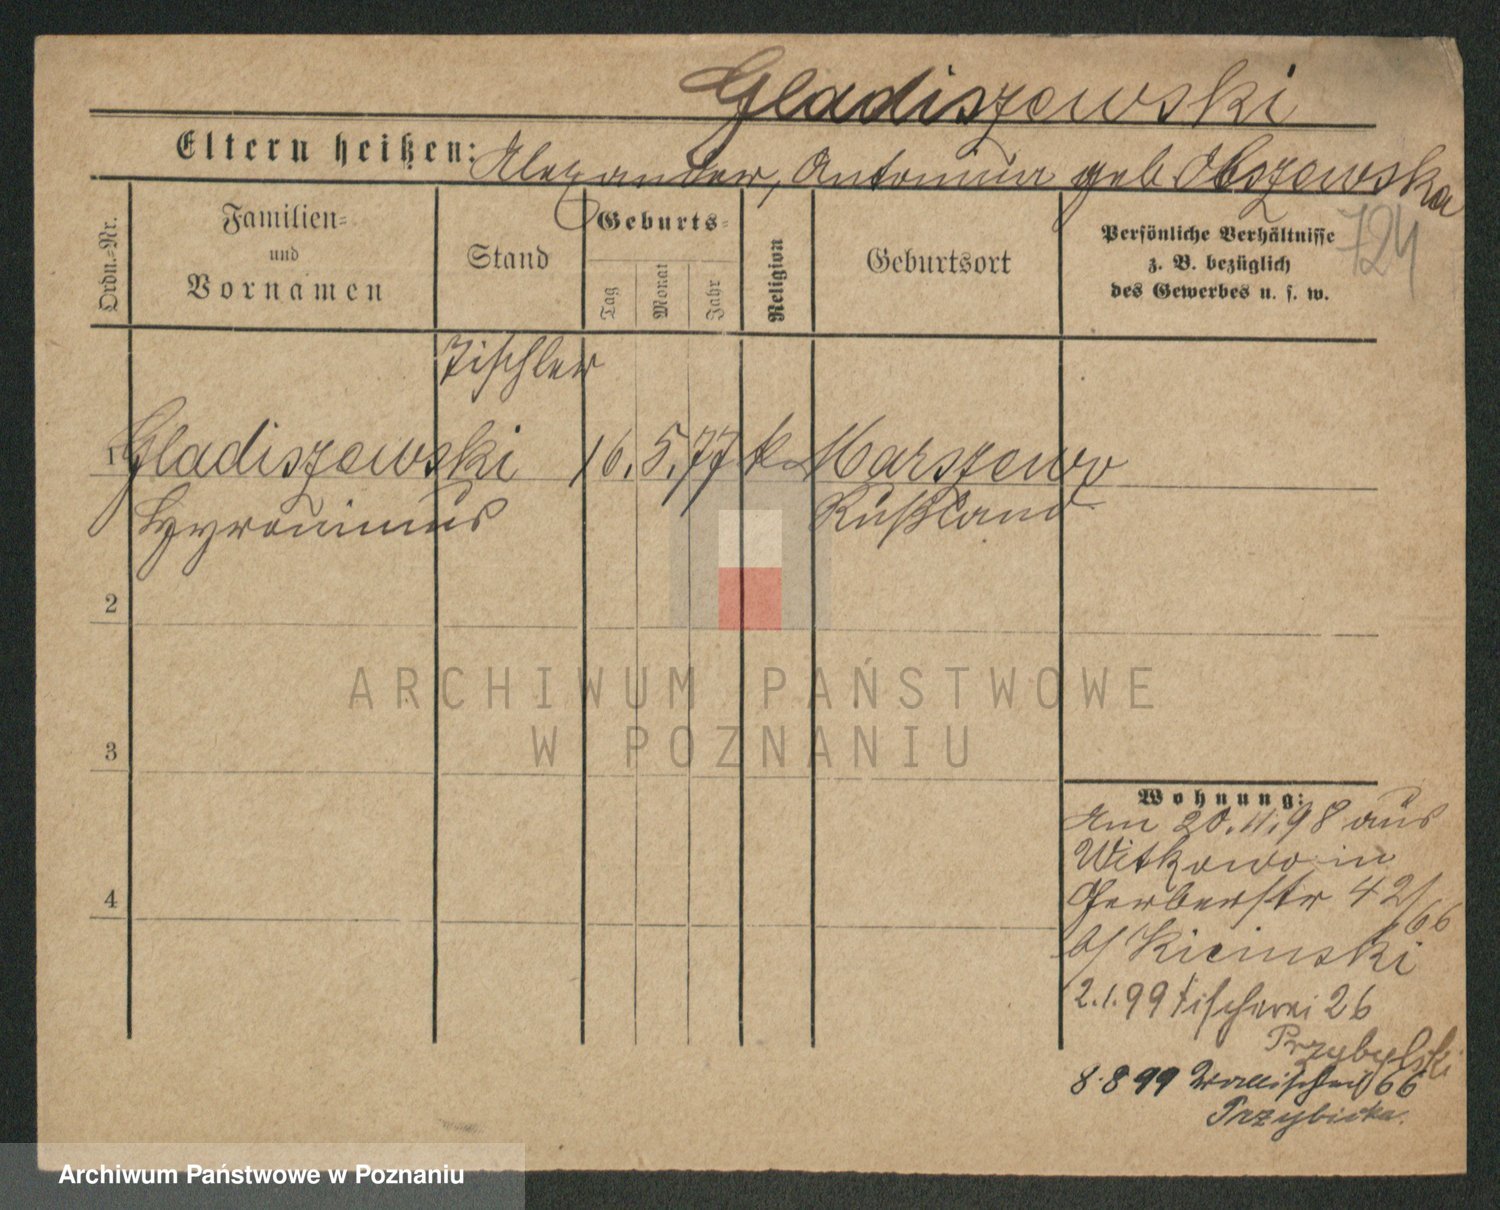 Gladiszewski
Eltern heißen: Alexander, Antonina geb Obszewska
724
Ordn.-Nr.
Familien-
und
Vornamen
Stand
Geburts-
Tag
Monat
Jahr
Religion
Geburtsort
Persönliche Verhältnisse
z. B. bezüglich
des Gewerbes u. s. w.
Tischler
1 Gladiszewski 16. 5. 77 k. Marszewo
Hyronimus Rußland
2
3
4
ARCHIWUM PAŃSTWOWE
W POZNANIU
Wohnung:
Am 20.11.98 aus
Witkowo in
Gerberstr 42/66
b/ Kicinski
2.1.99 Fischerei 26
Przybylski
8.8 99 Wallischei 66
Przybicka.
Archiwum Państwowe w Poznaniu